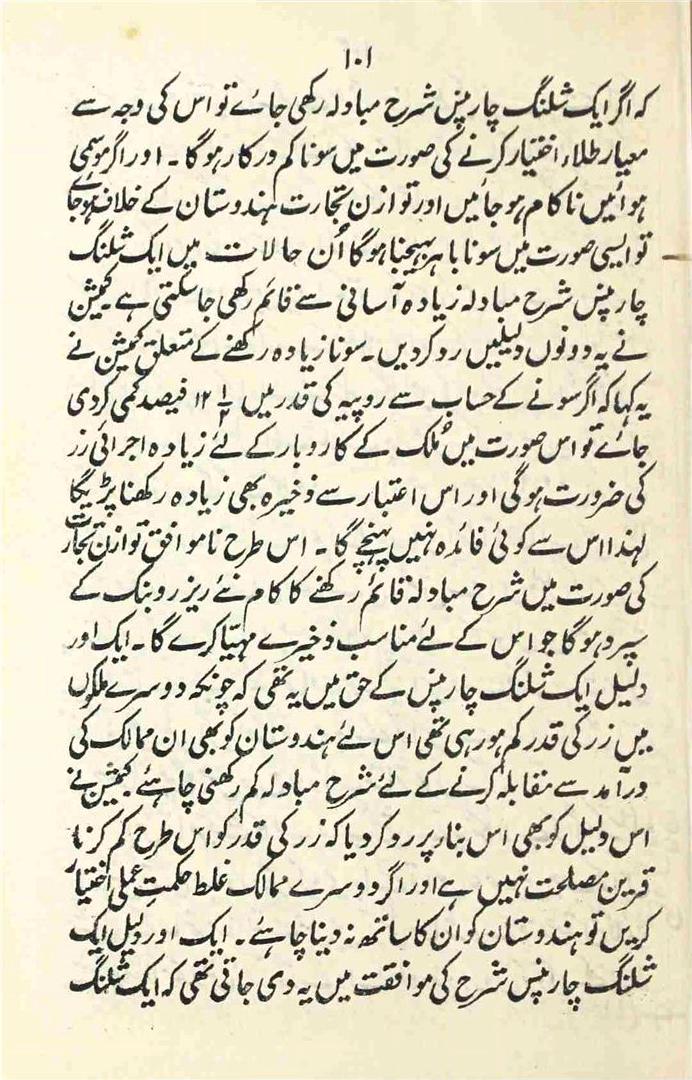 ۱۰۱
کہ اگر ایک شلنگ چار پنس شرح مبادلہ رکھی جائے تو اس کی وجہ سے
معیار طلاء اختیار کرنے کی صورت میں سونا کم درکار ہوگا۔ اور اگر موسمی
ہوائیں ناکام ہو جائیں اور توازن تجارت ہندوستان کے خلاف ہو جائے
تو ایسی صورت میں سونا باہر بھیجنا ہوگا اُن حالات میں ایک شلنگ
چار پنس شرح مبادلہ زیادہ آسانی سے قائم رکھی جا سکتی ہے۔ کمیشن
نے یہ دونوں دلیلیں رد کر دیں۔ سونا زیادہ رکھنے کے متعلق کمیشن نے
یہ کہا کہ اگر سونے کے حساب سے روپیہ کی قدر میں ۱۲ ۱/۲ فیصد کمی کر دی
جائے تو اس صورت میں مُلک کے کاروبار کے لئے زیادہ اجرائی زر
کی ضرورت ہوگی اور اس اعتبار سے ذخیرہ بھی زیادہ رکھنا پڑیگا
لہذا اس سے کوئی فائدہ نہیں پہنچے گا۔ اس طرح ناموافق توازن تجارت
کی صورت میں شرح مبادلہ قائم رکھنے کا کام نئے ریزرو بنک کے
سپرد ہوگا جو اس کے لئے مناسب ذخیرے مہیّا کرے گا۔ ایک اور
دلیل ایک شلنگ چار پنس کے حق میں یہ تھی کہ چونکہ دوسرے ملکوں
میں زر کی قدر کم ہو رہی تھی اس لئے ہندوستان کو بھی ان ممالک کی
درآمد سے مقابلہ کرنے کے لئے شرح مبادلہ کم رکھنی چاہئے۔ کمیشن نے
اس دلیل کو بھی اس بناء پر رد کر دیا کہ زر کی قدر کو اس طرح کم کرنا
قرین مصلحت نہیں ہے اور اگر دوسرے ممالک غلط حکمتِ عملی اختیار
کریں تو ہندوستان کو ان کا ساتھ نہ دینا چاہئے۔ ایک اور دلیل ایک
شلنگ چار پنس شرح کی موافقت میں یہ دی جاتی تھی کہ ایک شلنگ